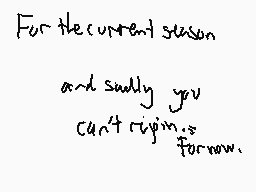 For the current season
and sadly you
can't rejoin..
For now.